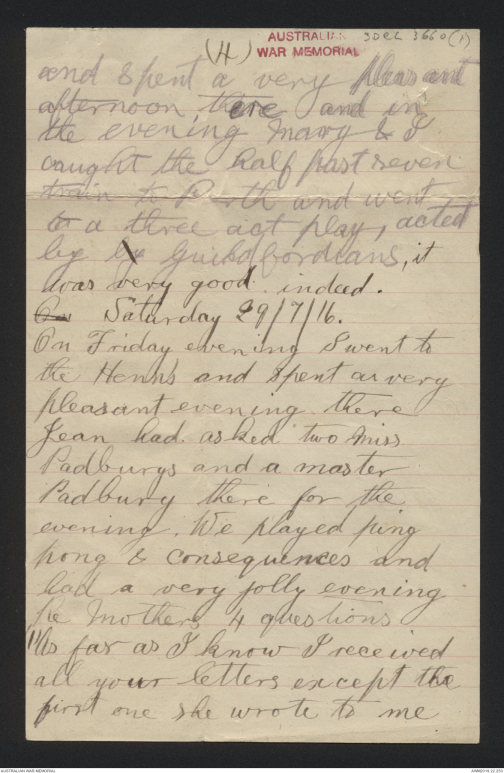 (4) AUSTRALIAN 3DRL 3660(1)
WAR MEMORIAL
and spent a very pleasant
afternoon, there and in
the evening Mary & I
caught the half past seven
train to Perth and went
to a three act play, acted
by by Guildfordians, it
was very good indeed.
On Saturday 29/7/16.
On Friday evening I went to
the Henn's and spent a very
pleasant evening there
Jean had asked two Miss
Padburys and a master
Padbury there for the
evening. We played ping
pong & consequences and
had a very jolly evening
Re Mothers 4 questions
1) As far as I know I received
all your letters except the
first one she wrote to me
AUSTRALIAN WAR MEMORIAL